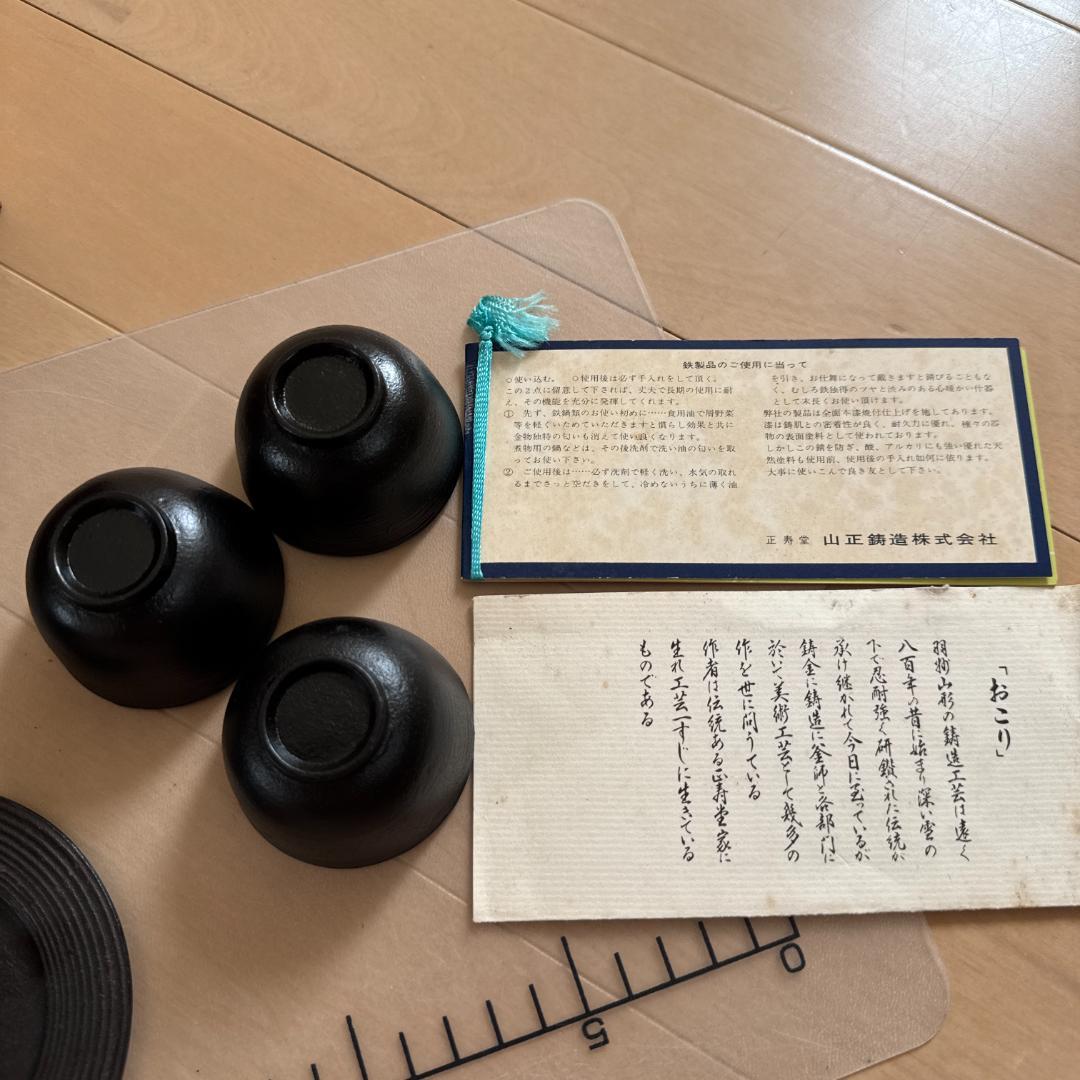 鉄製品のご使用に当って
○使い込む。 ○使用後は必ず手入れをして頂く。
この2点に留意して下されば、丈夫で長期の使用に耐
え、その機能を充分に発揮してくれます。
① 先ず、鉄鍋類のお使い初めに……食用油で屑野菜
等を軽くいためていただきますと慣らし効果と共に
金物独特の匂いも消えて使い良くなります。
煮物用の鍋などは、その後洗剤で洗い油の匂いを取
ってお使い下さい。
② ご使用後は……必ず洗剤で軽く洗い、水気の取れ
るまでさっと空だきをして、冷めないうちに薄く油
を引き、お仕舞になって戴きますと錆びることもな
く、むしろ鉄独得のツヤと渋みのある心暖かい什器
として末長くお使い頂けます。
弊社の製品は全面本漆焼付仕上げを施してあります。
漆は鋳肌との密着性が良く、耐久力に優れ、種々の器
物の表面塗料として使われております。
しかしこの錆を防ぎ、酸、アルカリにも強い優れた天
然塗料も使用前、使用後の手入れ如何に依ります。
大事に使いこんで良き友として下さい。
正寿堂 山正鋳造株式会社
「おこり」
羽州山形の鋳造工芸は遠く
八百年の昔に始まり深い雪の
下で忍耐強く研鑽された伝統が
承け継がれて今日に至っているが
鋳金に鋳造に釜師と各部門に
於いて美術工芸として幾多の
作を世に問うている
作者は伝統ある正寿堂家に
生れ工芸一すじに生きている
ものである
0
5